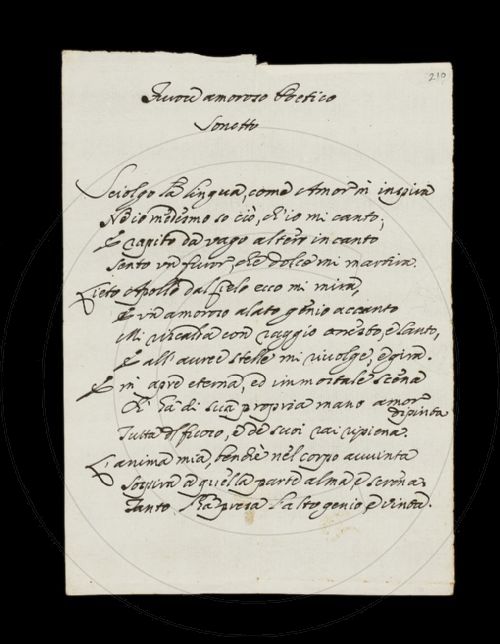 219
Furore amoroso Poetico
Sonetto
Sciolgo la lingua, come Amor m' inspira
Ne io medesmo so ciò, ch'io mi canto;
E rapito da vago altero incanto
Sento un furor, che dolce mi martira.
Lieto Apollo dal Cielo ecco mi mira,
E un amoroso alato genio accanto
Mi riscalda con raggio onesto, e santo,
E all' auree stelle mi rivolge, e gira.
E m' apre eterna, ed immortale scena
Ch' ha di sua propria mano amor
dipinta
Tutta di fuoco, e de suoi rai ripiena.
L' anima mia, benchè nel corpo avvinta
Sospira a quella parte alma e serena
Tanto l'ha presa l'alto genio, e vinta.